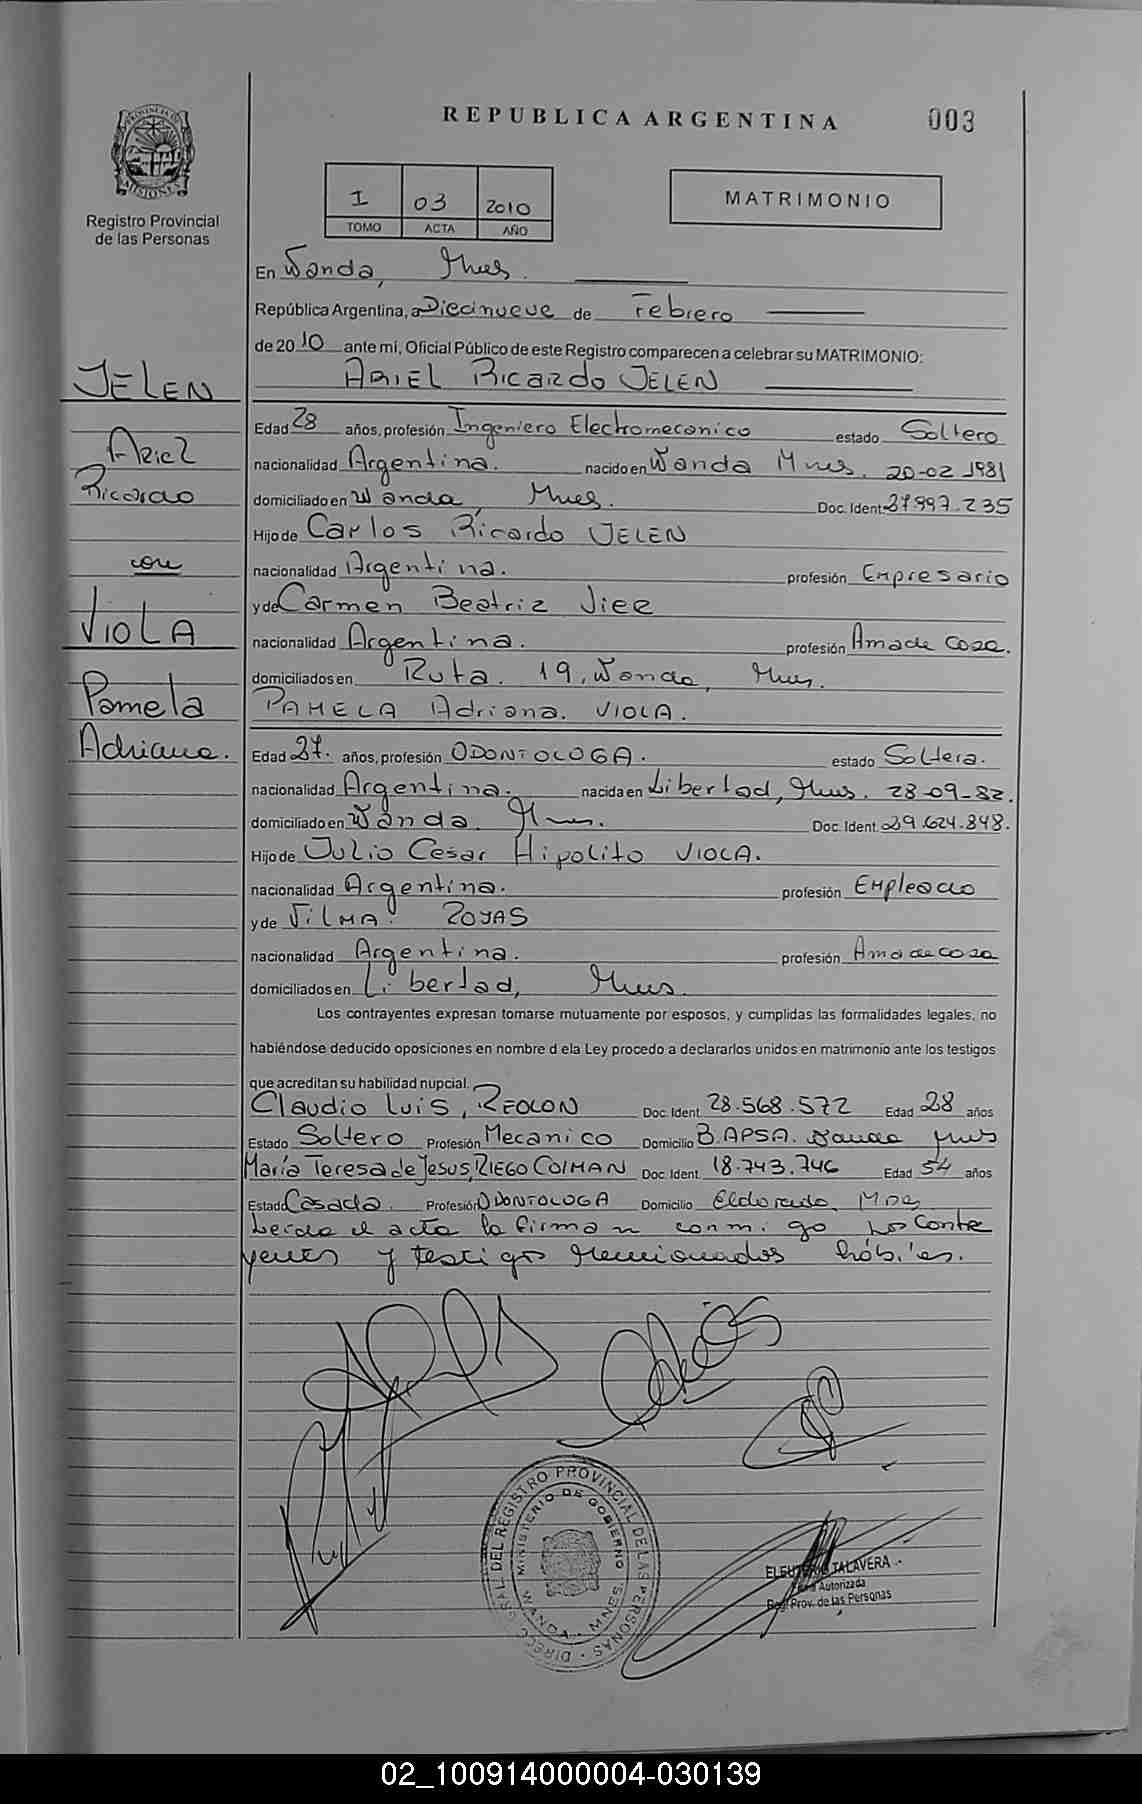 REPUBLICA ARGENTINA
003
PROVINCIA DE MISIONES
Registro Provincial
de las Personas
I 03 2010
TOMO ACTA AÑO
MATRIMONIO
En Wanda, Mnes.
República Argentina, a Diecinueve de Febrero
de 2010 ante mi, Oficial Público de este Registro comparecen a celebrar su MATRIMONIO:
ARIEL RICARDO JELEN
JELEN
Ariel
Ricardo
con
VIOLA
Pamela
Adriana.
Edad 28 años, profesión Ingeniero Electromecanico estado Soltero
nacionalidad Argentina. nacido en Wanda Mnes. 20-02 1981
domiciliado en Wanda, Mnes. Doc. Ident. 27.997.235
Hijo de Carlos Ricardo JELEN
nacionalidad Argentina. profesión Empresario
y de Carmen Beatriz
nacionalidad Argentina. profesión Ama de Casa.
domiciliados en Ruta. 19, Wanda, Mnes.
PAMELA Adriana. VIOLA.
Edad 27. años, profesión ODONTOLOGA. estado Soltera.
nacionalidad Argentina. nacida en Libertad, Mnes. 28-09-82.
domiciliado en Wanda. Mnes. Doc. Ident. 29.624.848.
Hijo de Julio Cesar Hipolito VIOLA.
nacionalidad Argentina. profesión Empleado
y de VILMA. ROJAS
nacionalidad Argentina. profesión Ama de casa
domiciliados en Libertad, Mnes.
Los contrayentes expresan tomarse mutuamente por esposos, y cumplidas las formalidades legales, no
habiéndose deducido oposiciones en nombre d ela Ley procedo a declararlos unidos en matrimonio ante los testigos
que acreditan su habilidad nupcial.
Claudio Luis, REOLON Doc. Ident. 28.568.572 Edad 28 años
Estado Soltero Profesión Mecanico Domicilio B. APSA. Wanda Mnes
María Teresa de Jesus, RIEGO COLMAN Doc. Ident. 18.743.746 Edad 54 años
Estado Casada. Profesión ODONTOLOGA Domicilio Eldorado, Mnes
Leida el acta la firman conmigo los Contra
yentes y testigos mencionados hábiles.
DIRECC. GRAL. DEL REGISTRO PROVINCIAL DE LAS PERSONAS
MINISTERIO DE GOBIERNO
WANDA - MNES.
ELEUTERIO TALAVERA
Autorizada
Reg. Prov. de las Personas
02_100914000004-030139